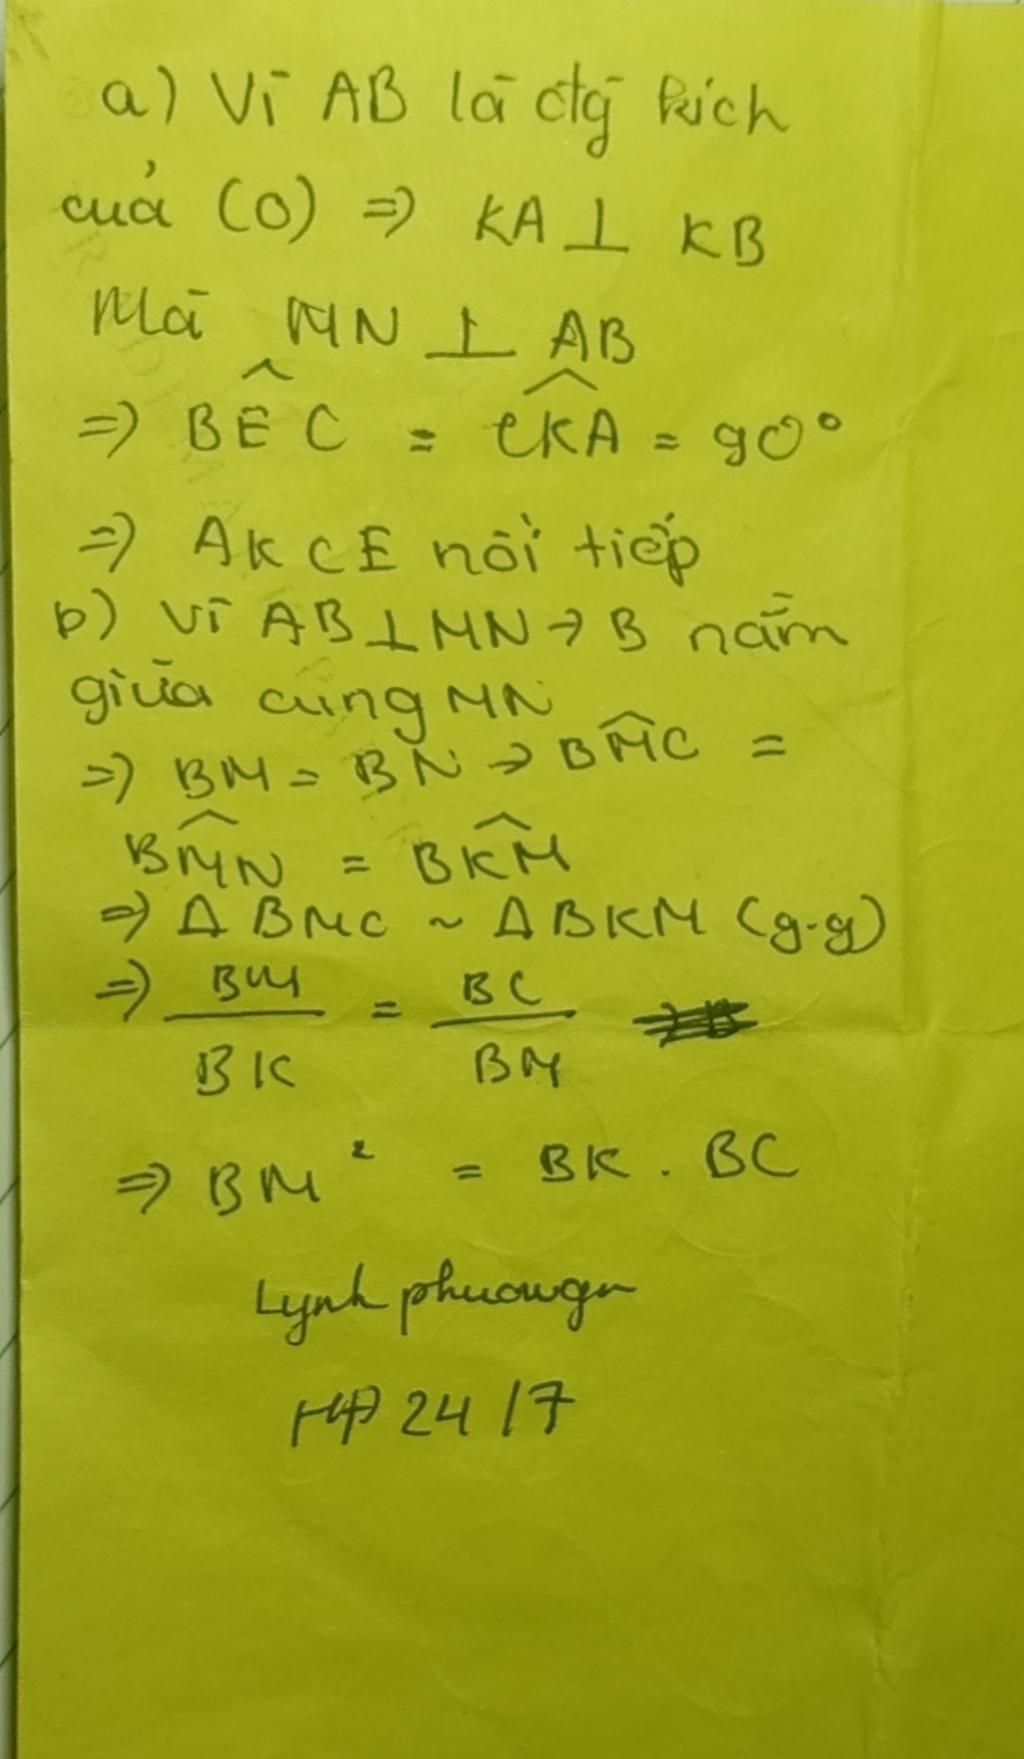 a) Vì AB là đg kích
của (O) => KA ⊥ KB
Mà MN ⊥ AB
=> BÊC = CKA = 90°
=> AKCE nội tiếp
b) Vì AB ⊥ MN → B nằm
giữa cung MN
=> BM = BN → BMC =
BMN = BKM
=> Δ BMC ~ Δ BKM (g.g)
=> BM/BK = BC/BM
=> BM² = BK . BC
Lynh phuowgn
HP 24/7